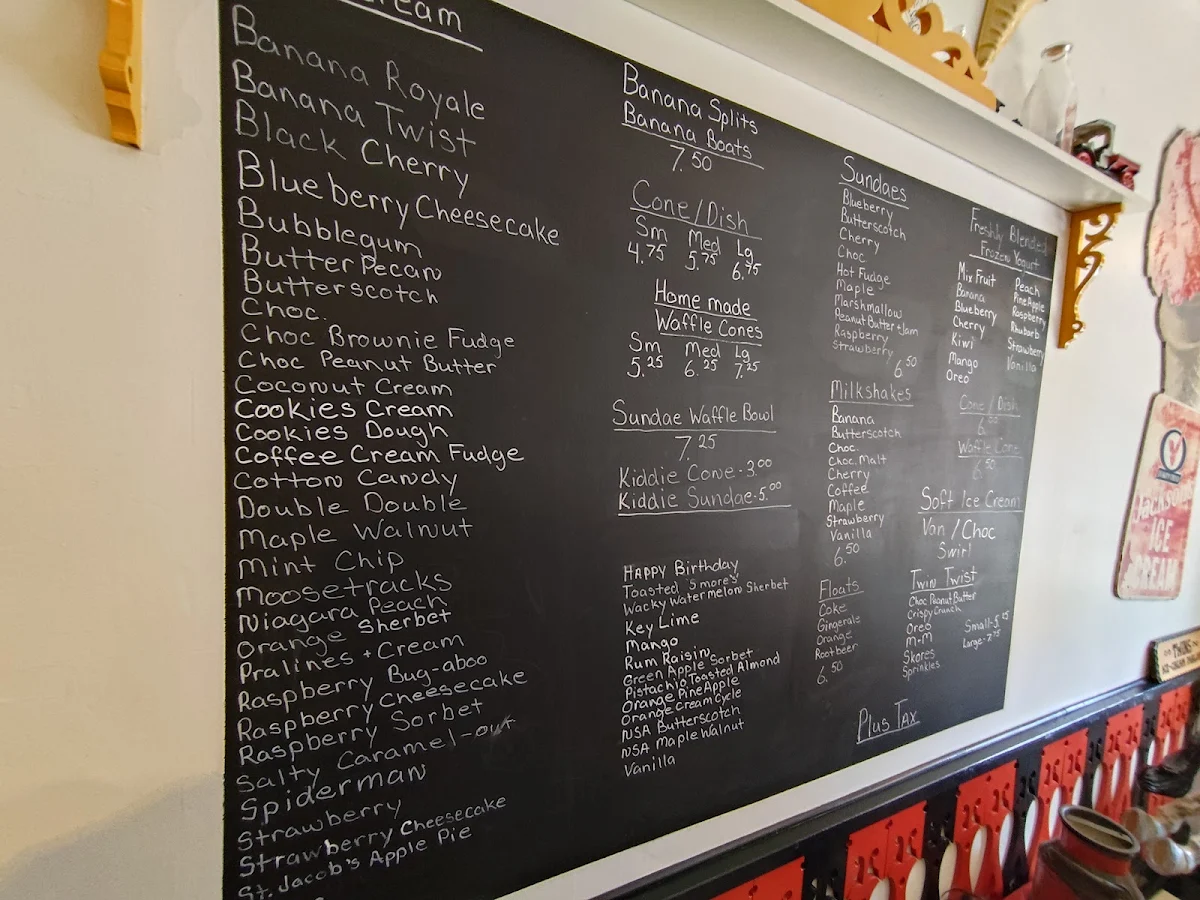 cream
Banana Royale
Banana Twist
Black Cherry
Blueberry Cheesecake
Bubblegum
Butter Pecan
Butterscotch
Choc.
Choc Brownie Fudge
Choc Peanut Butter
Coconut Cream
Cookies Cream
Cookies Dough
Coffee Cream Fudge
Cotton Candy
Double Double
Maple Walnut
Mint Chip
Moosetracks
Niagara Peach
Orange Sherbet
Pralines + Cream
Raspberry Bug-aboo
Raspberry Cheesecake
Raspberry Sorbet
Salty Caramel-out
Spiderman
Strawberry
Strawberry Cheesecake
St. Jacob's Apple Pie
Banana Splits
Banana Boats
7.50
Cone/Dish
Sm Med Lg
4.75 5.75 6.75
Home made
Waffle Cones
Sm Med Lg
5.25 6.25 7.25
Sundae Waffle Bowl
7.25
Kiddie Cone - 3.00
Kiddie Sundae - 5.00
Happy Birthday
Toasted Smores'
Wacky Watermelon Sherbet
Key Lime
Mango
Rum Raisin
Green Apple Sorbet
Pistachio Toasted Almond
Orange PineApple
Orange CreamCycle
NSA Butterscotch
NSA Maple Walnut
Vanilla
Sundaes
Blueberry
Butterscotch
Cherry
Choc
Hot Fudge
Maple
Marshmallow
Peanut Butter + Jam
Raspberry
Strawberry
6.50
Milkshakes
Banana
Butterscotch
Choc.
Choc. Malt
Cherry
Coffee
Maple
Strawberry
Vanilla
6.50
Floats
Coke
Gingerale
Orange
Rootbeer
6.50
Freshly Blended
Frozen Yogurt
Mix Fruit Peach
Banana PineApple
Blueberry Raspberry
Cherry Rhubarb
Kiwi Strawberry
Mango Vanilla
Oreo
Cone/Dish
6.
Waffle Cone
6.50
Soft Ice Cream
Van/Choc
Swirl
Twin Twist
Choc Peanut Butter
Crispy Crunch
Oreo
M+M
Skores
Sprinkles
Small-5.
Large-7.75
Plus Tax
Jackson
ICE
CREAM